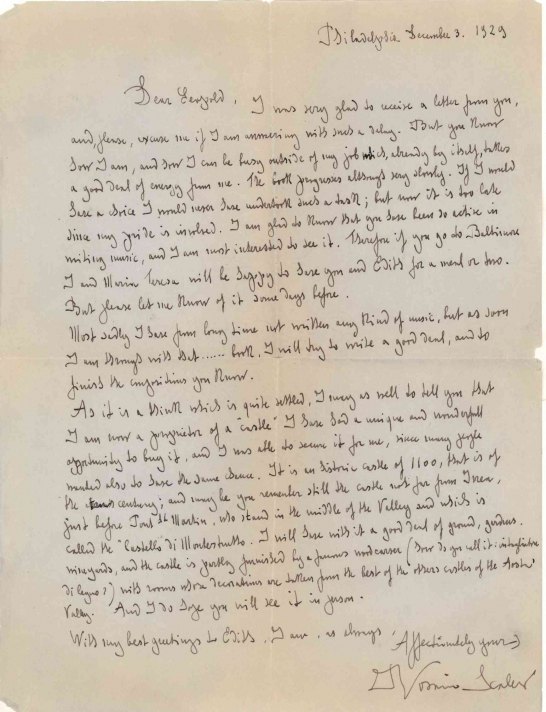 Philadelphia December 3. 1929
Dear Leopold, I was very glad to receive a letter from you,
and, please, excuse me if I am answering with such a delay. But you know
how I am, and how I can be busy outside of my job which, already by itself, takes
a good deal of energy from me. The book progresses although very slowly. If I would
have a choice I would never have undertook such a task; but now it is too late
since my pride is involved. I am glad to know that you have been so active in
writing music, and I am most interested to see it. Therefore if you go to Baltimore
I and Maria Teresa will be happy to have you and Edith for a meal or two.
But please let me know of it some days before.
Most sadly I have from long time not written any kind of music, but as soon
I am through with that ...... book, I will try to write a good deal, and to
finish the compositions you know.
As it is a think which is quite settled, I may as well to tell you that
I am now a proprietor of a castle! I have had a unique and wonderfull
opportunity to buy it, and I was able to secure it for me, since many people
wanted also to have the same chance. It is an historic castle of 1100, that is of
the century; and may be you remember still the castle not far from Ivrea,
just before Pont St. Martin, who stand in the middle of the Valley and which is
called the "Castello di Montestrutto. I will have with it a good deal of ground, gardens,
vineyards, and the castle is partly furnished by a famous woodcarver (how do you call it:
di legno?) with rooms whose decorations are taken from the best of the others castles of the Aosta
Valley. And I do hope you will see it in person.
With my best greetings to Edith, I am, as always,
Affectionately yours
Vosmino